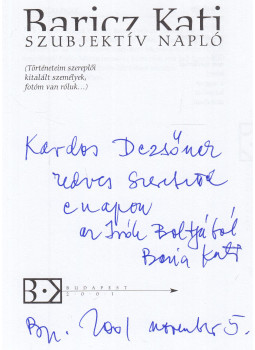 Baricz Kati
SZUBJEKTÍV NAPLÓ
(Történeteim szereplői
kitalált személyek,
fotóm van róluk...)
Kardos Dezsőnek
kedves
e napon
az Írók Boltjából
Baricz Kati
BUDAPEST
2001
Bp. 2001 november 5.